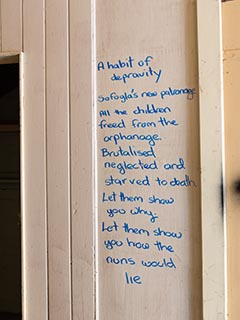 A habit of
depravity
Sofogla's new patronage
All the children
freed from the
orphanage.
Brutalised
neglected and
starved to death
Let them show
you why.
Let them show
you how the
nuns would
lie